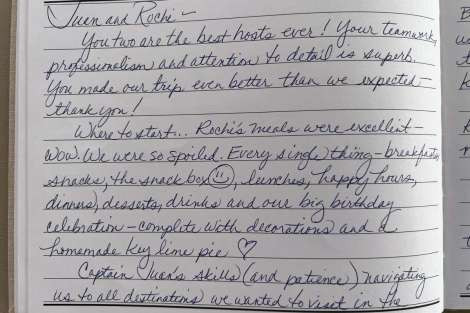 Juan and Rochi -
You two are the best hosts ever! Your teamwork,
professionalism and attention to detail is superb.
You made our trip even better than we expected -
thank you!
Where to start... Rochi's meals were excellent -
wow. We were so spoiled. Every single thing - breakfasts,
snacks, the snack box ☺, lunches, happy hours,
dinners, desserts, drinks and our big birthday
celebration - complete with decorations and a
homemade key lime pie ♡
Captain Juan's skills (and patience) navigating
us to all destinations we wanted to visit in the